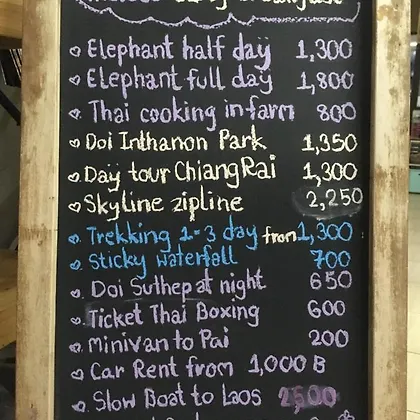 Elephant half day 1,300
Elephant full day 1,800
Thai cooking in farm 800
Doi Inthanon Park 1,350
Day tour Chiang Rai 1,300
Skyline zipline 2,250
Trekking 1-3 day from 1,300
Sticky Waterfall 700
Doi Suthep at night 650
Ticket Thai Boxing 600
Minivan to Pai 200
Car Rent from 1,000 B
Slow Boat to Laos 2,500